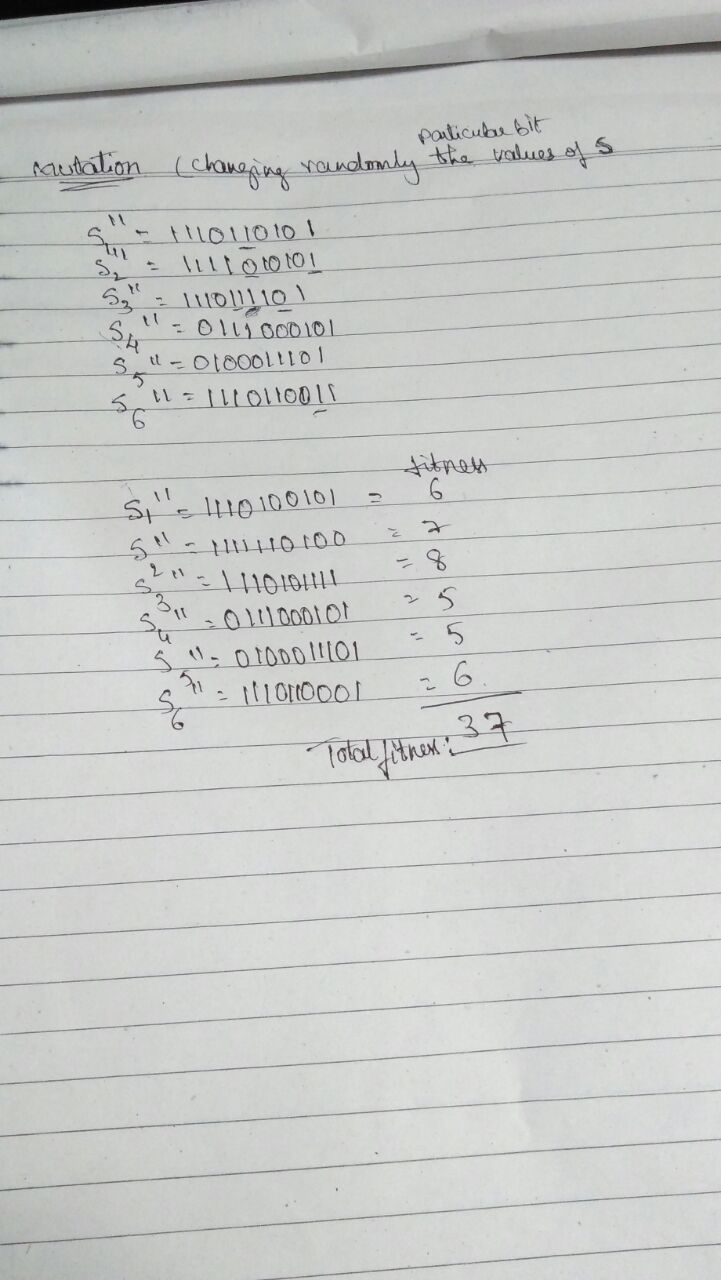 particular bit
Mutation (Changing randomly the values of s
S1'' = 1110110101
S2'' = 1111010101
S3'' = 1110111101
S4'' = 0111000101
S5'' = 0100011101
S6'' = 1110110011
fitness
S1'' = 1110100101 = 6
S2'' = 1111110100 = 7
S3'' = 1110101111 = 8
S4'' = 0111000101 = 5
S5'' = 0100011101 = 5
S6'' = 1110110001 = 6
Total fitness: 37